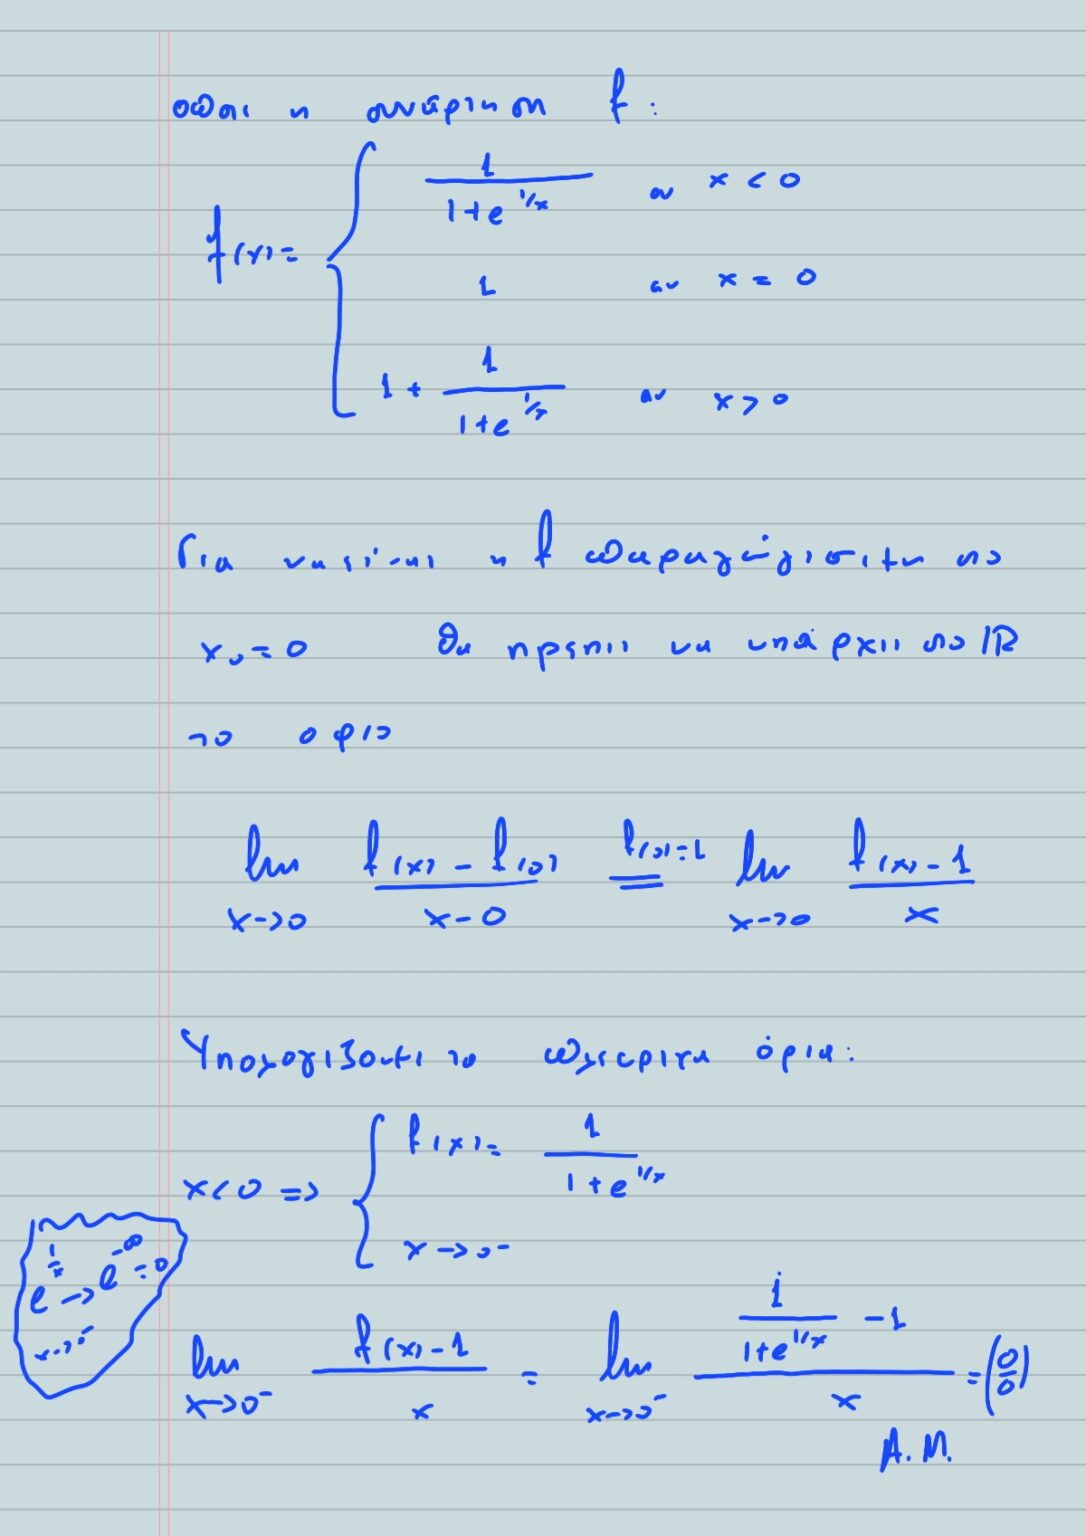 οποι η συνάρτηση f:
f(x) = { 1/(1+e^{1/x}) αν x < 0
1 αν x = 0
1 + 1/(1+e^{1/x}) αν x > 0
Για να είναι η f παραγωγίσιμη στο
x₀ = 0 Θα πρέπει να υπάρχει στο ℝ
το όριο
lim_{x→0} (f(x) - f(0))/(x-0) =^{f(0)=1} lim_{x→0} (f(x)-1)/x
Υπολογίζουμε τα πλευρικά όρια:
x<0 => { f(x) = 1/(1+e^{1/x})
x→0⁻
e^{1/x} → e^{-∞} = 0
x→0⁻
lim_{x→0⁻} (f(x)-1)/x = lim_{x→0⁻} (1/(1+e^{1/x}) - 1)/x = (0/0)
Α.Μ.